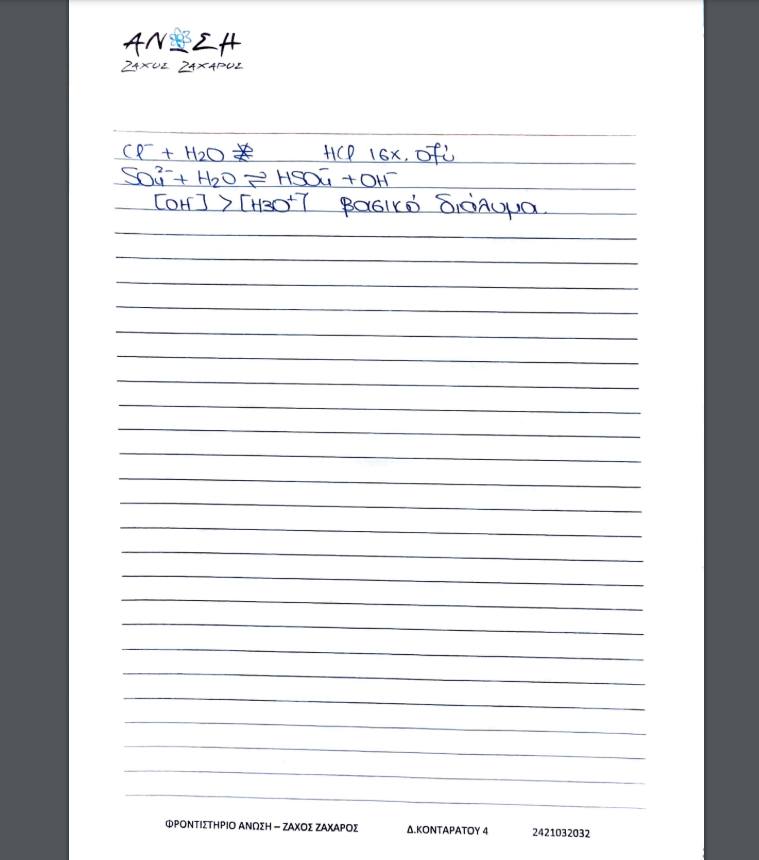 ΑΝΩΣΗ
ΖΑΧΟΣ ΖΑΧΑΡΟΣ
Cl⁻ + H2O HCl ισχ. οξύ
SO₄²⁻ + H2O ⇌ HSO₄⁻ + OH⁻
[OH⁻] > [H3O⁺] βασικό διάλυμα.
ΦΡΟΝΤΙΣΤΗΡΙΟ ΑΝΩΣΗ – ΖΑΧΟΣ ΖΑΧΑΡΟΣ Δ.ΚΟΝΤΑΡΑΤΟΥ 4 2421032032